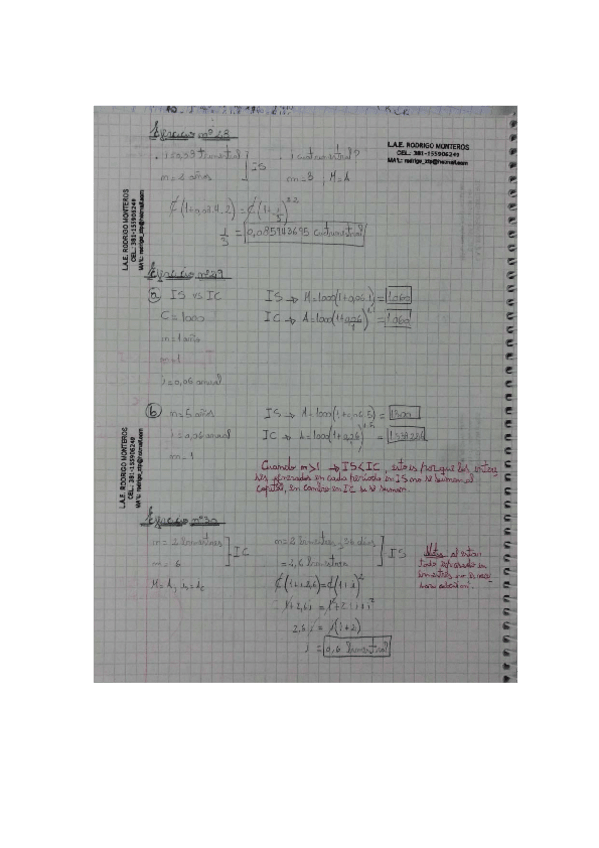 Ejercicio nº 28
i=0,03 trimestral
i cuatrimestral?
IS
n=2 años
m=3, M=A
L.A.E. RODRIGO MONTEROS
CEL.: 381-155906249
MAIL: rodrigo_stp@hotmail.com
= 0,085943695 cuatrimestral
L.A.E. RODRIGO MONTEROS
CEL.: 381-155906249
MAIL: rodrigo_stp@hotmail.com
Ejercicio nº 29
a) IS vs IC
IS → M=1000(1+0,06.1) = 1.060
C=1000
IC → A=1000(1+0,06/1)^1.1 = 1.060
n=1 año
m=1
i=0,06 anual
b) n=5 años
IS → A=1000(1+0,06.5) = 1300
i=0,06 anual
IC → A=1000(1+0,06/1)^1.5 =
m=1
L.A.E. RODRIGO MONTEROS
CEL.: 381-155906249
MAIL: rodrigo_stp@hotmail.com
Cuando n>1 → IS<IC, esto es porque los intere
ses generados en cada período en IS no se suman al
capital, en cambio en IC si se suman.
Ejercicio nº 30
n=2 bimestres
IC
n=2 bimestres y 36 días
IS
m=6
=2,6 bimestres
M=A, is=ic
₡(1+i.2,6)=₡(1+i)²
1+2,6i = 1²+2.1.i+i²
2,6i = i(i+2)
i = 0,6 bimestral
Nota: al estar
todo expresado en
bimestres no